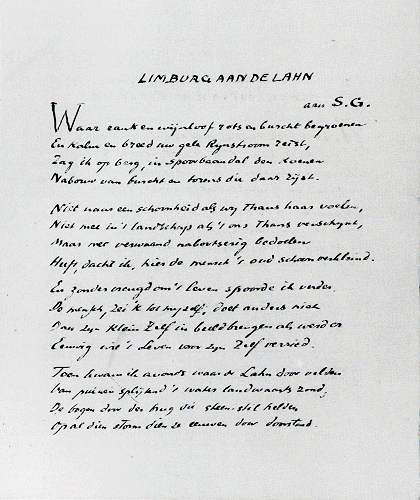 LIMBURG AAN DE LAHN
aan S.G.
Waar rank en wijnloof rots en burcht begroenen
En kalm en breed uw gele Rynstroom reist,
Zag ik op berg, in spoorbaandal den
Nabouw van burcht en torens die daar rijst.
Niet naar een schoonheid als wy Thans haar voelen,
Niet mee in 't landschap als 't ons Thans verschynt,
Maar met verwaand
Heeft, dacht ik, hier de mensch 't oud schoon
En zonder vreugd om 't leven spoorde ik verder.
De mensch, zei ik tot myzelf, doet anders niet
Dan zyn klein Zelf in beeld brengen als werd er
Eeuwig wie 't Leven voor zyn Zelf verried.
Toen kwam ik avonds waar de Lahn door velden
Van puinen splijtend 't water landwaarts zond,
De bogen door der brug die steen-stil helden
Op al dien storm dien ze eeuwen door doorstond.